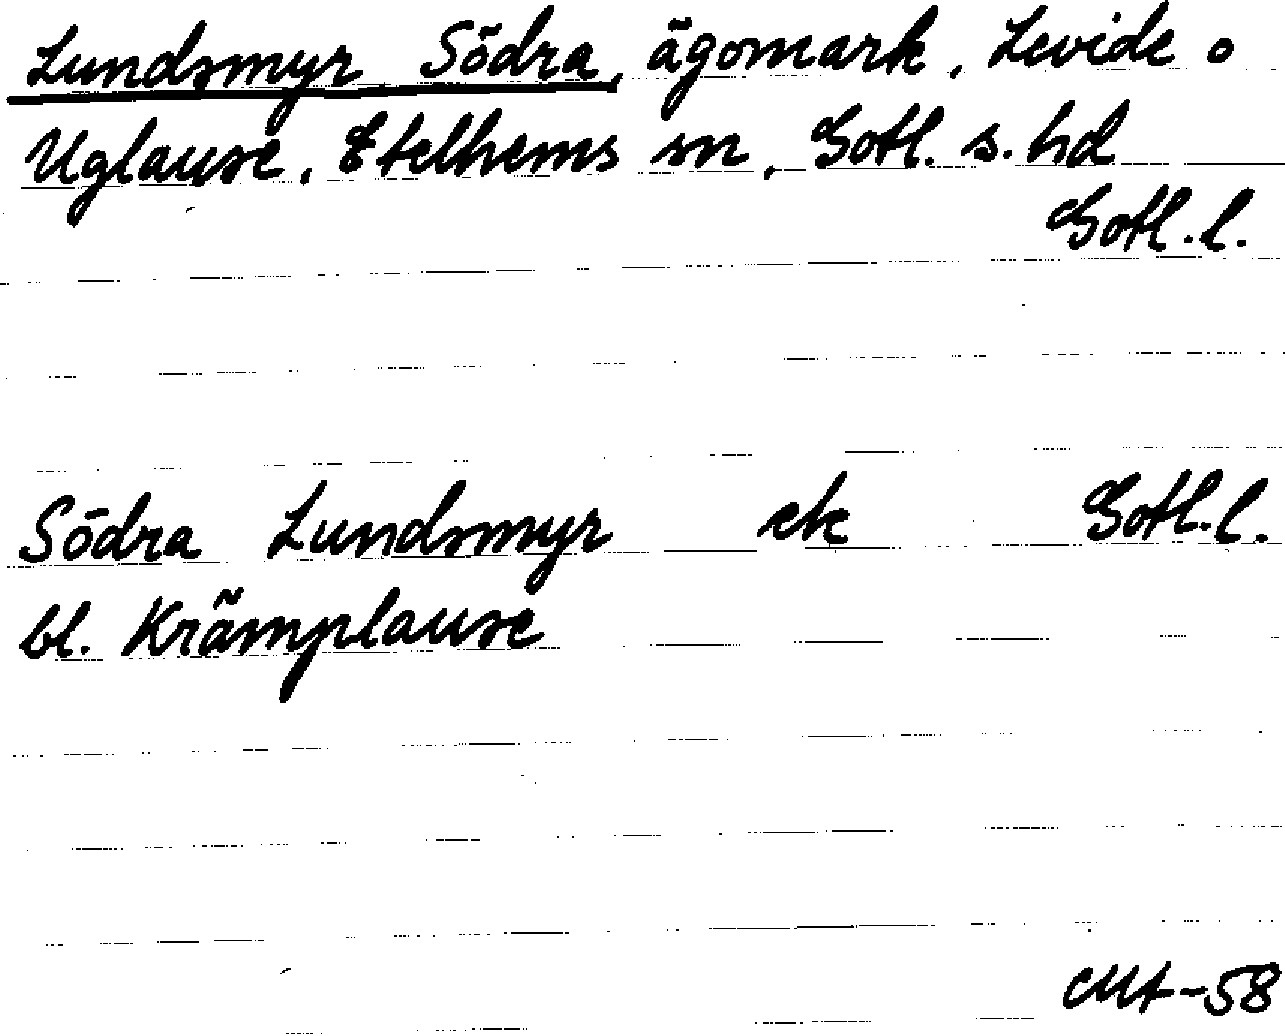 Lundsmyr Södra, ägomark, Levide o
Uglause, Etelhems sn, Gotl. s. hd
Gotl. l.
Södra Lundsmyr ek Gotl. l.
bl. Krämplause